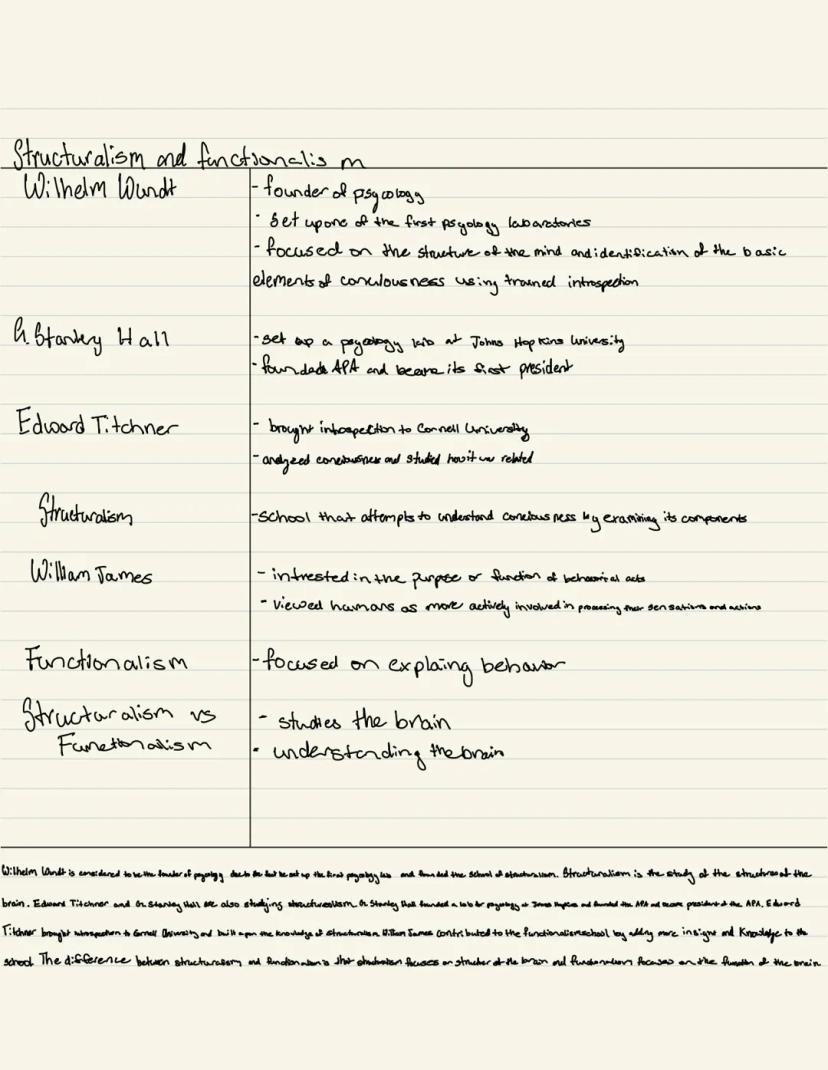 Structuralism and functionalism
Wilhelm Wundt
- founder of psycology
- Set up one of the first psyology laboratories
- focused on the structure of the mind and identification of the basic
elements of conciousness using trained introspection
G. Stanley Hall
- set up a psycology lab at Johns Hopkins University
- founded APA and became its first president
Edward Titchner
- brought introspection to Cornell University
- analyzed conciousness and studied how it was related
Structuralism
- school that attempts to understand conciousness by examining its components
William James
- intrested in the purpose or function of behavioral acts
- viewed humans as more actively involved in processing their sensations and actions
Functionalism
- focused on explaing behavior
Structuralism vs
Functionalism
- studies the brain
- understanding the brain
Wilhelm Wundt is considered to be the founder of psycology due to the fact he set up the first psycology lab and founded the school of structuralism. Structuralism is the study of the structures of the
brain. Edward Titchner and G. Stanley Hall are also studying structuralism. G. Stanley Hall founded a lab for psycology at Johns Hopkins and founded the APA and became president of the APA. Edward
Titchner brought introspection to Cornell University and built upon the knowledge of structuralism. William James contributed to the functionalism school by adding more insight and knowledge to the
school. The difference between structuralism and functionalism is that structuralism focuses on structure of the brain and functionalism focuses on the function of the brain.